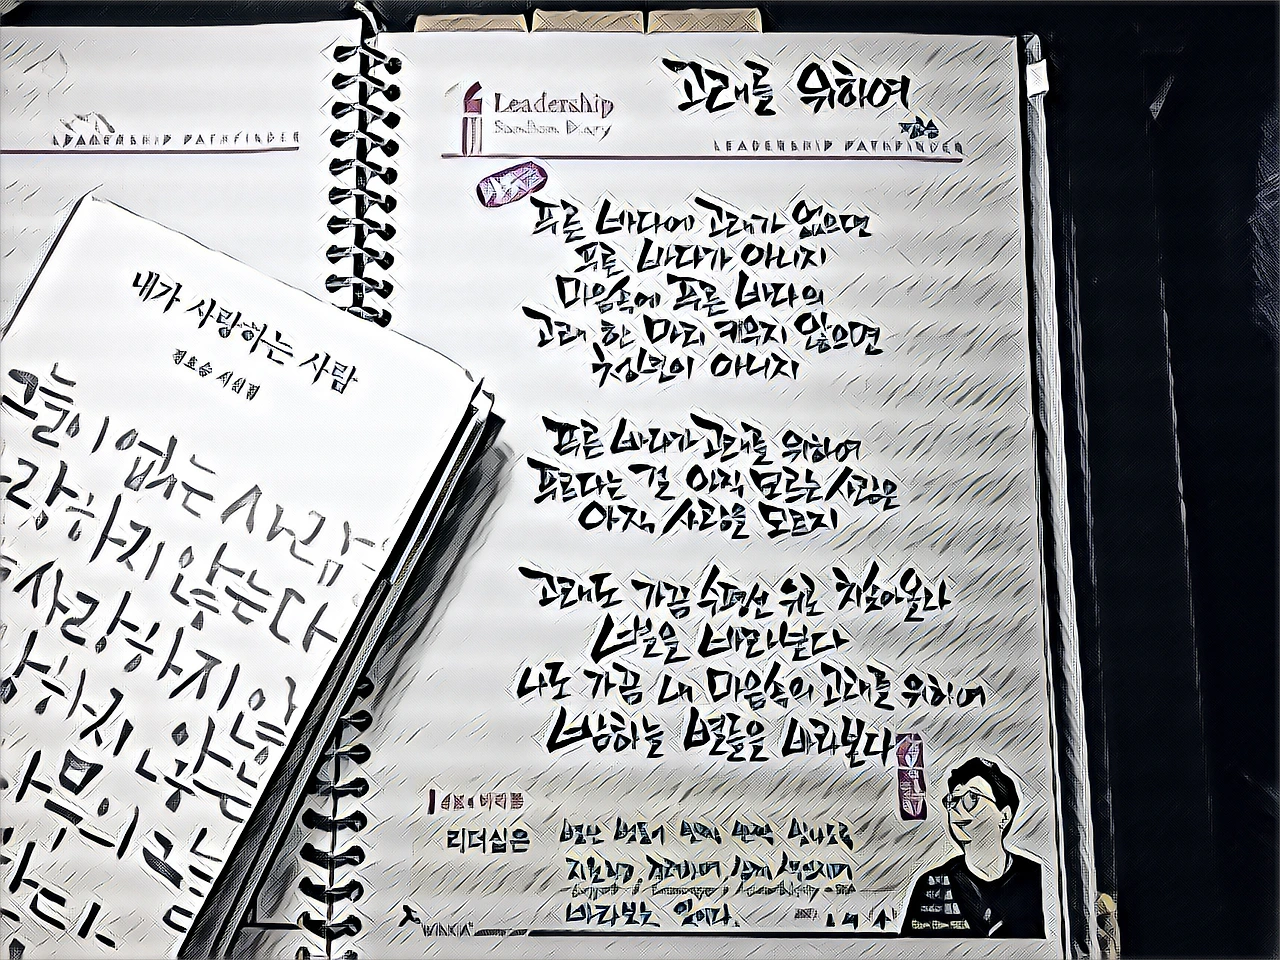 LEADERSHIP PATHFINDER
내가 사랑하는 사람
정호승 시선집
그늘이 없는 사람
랑하지 않는다
사랑하지 않
랑하지 않는
나무의 그늘
Leadership
고래를 위하여
LEADERSHIP PATHFINDER
푸른 바다에 고래가 없으면
푸른 바다가 아니지
마음속에 푸른 바다의
고래 한 마리 키우지 않으면
청년이 아니지
푸른 바다가 고래를 위하여
푸르다는 걸 아직 모르는 사람은
아직 사랑을 모르지
고래도 가끔 수평선 위로 치솟아올라
별을 바라본다
나도 가끔 내 마음속의 고래를 위하여
밤하늘 별들을 바라본다
리더십은
바라보는 일이다.